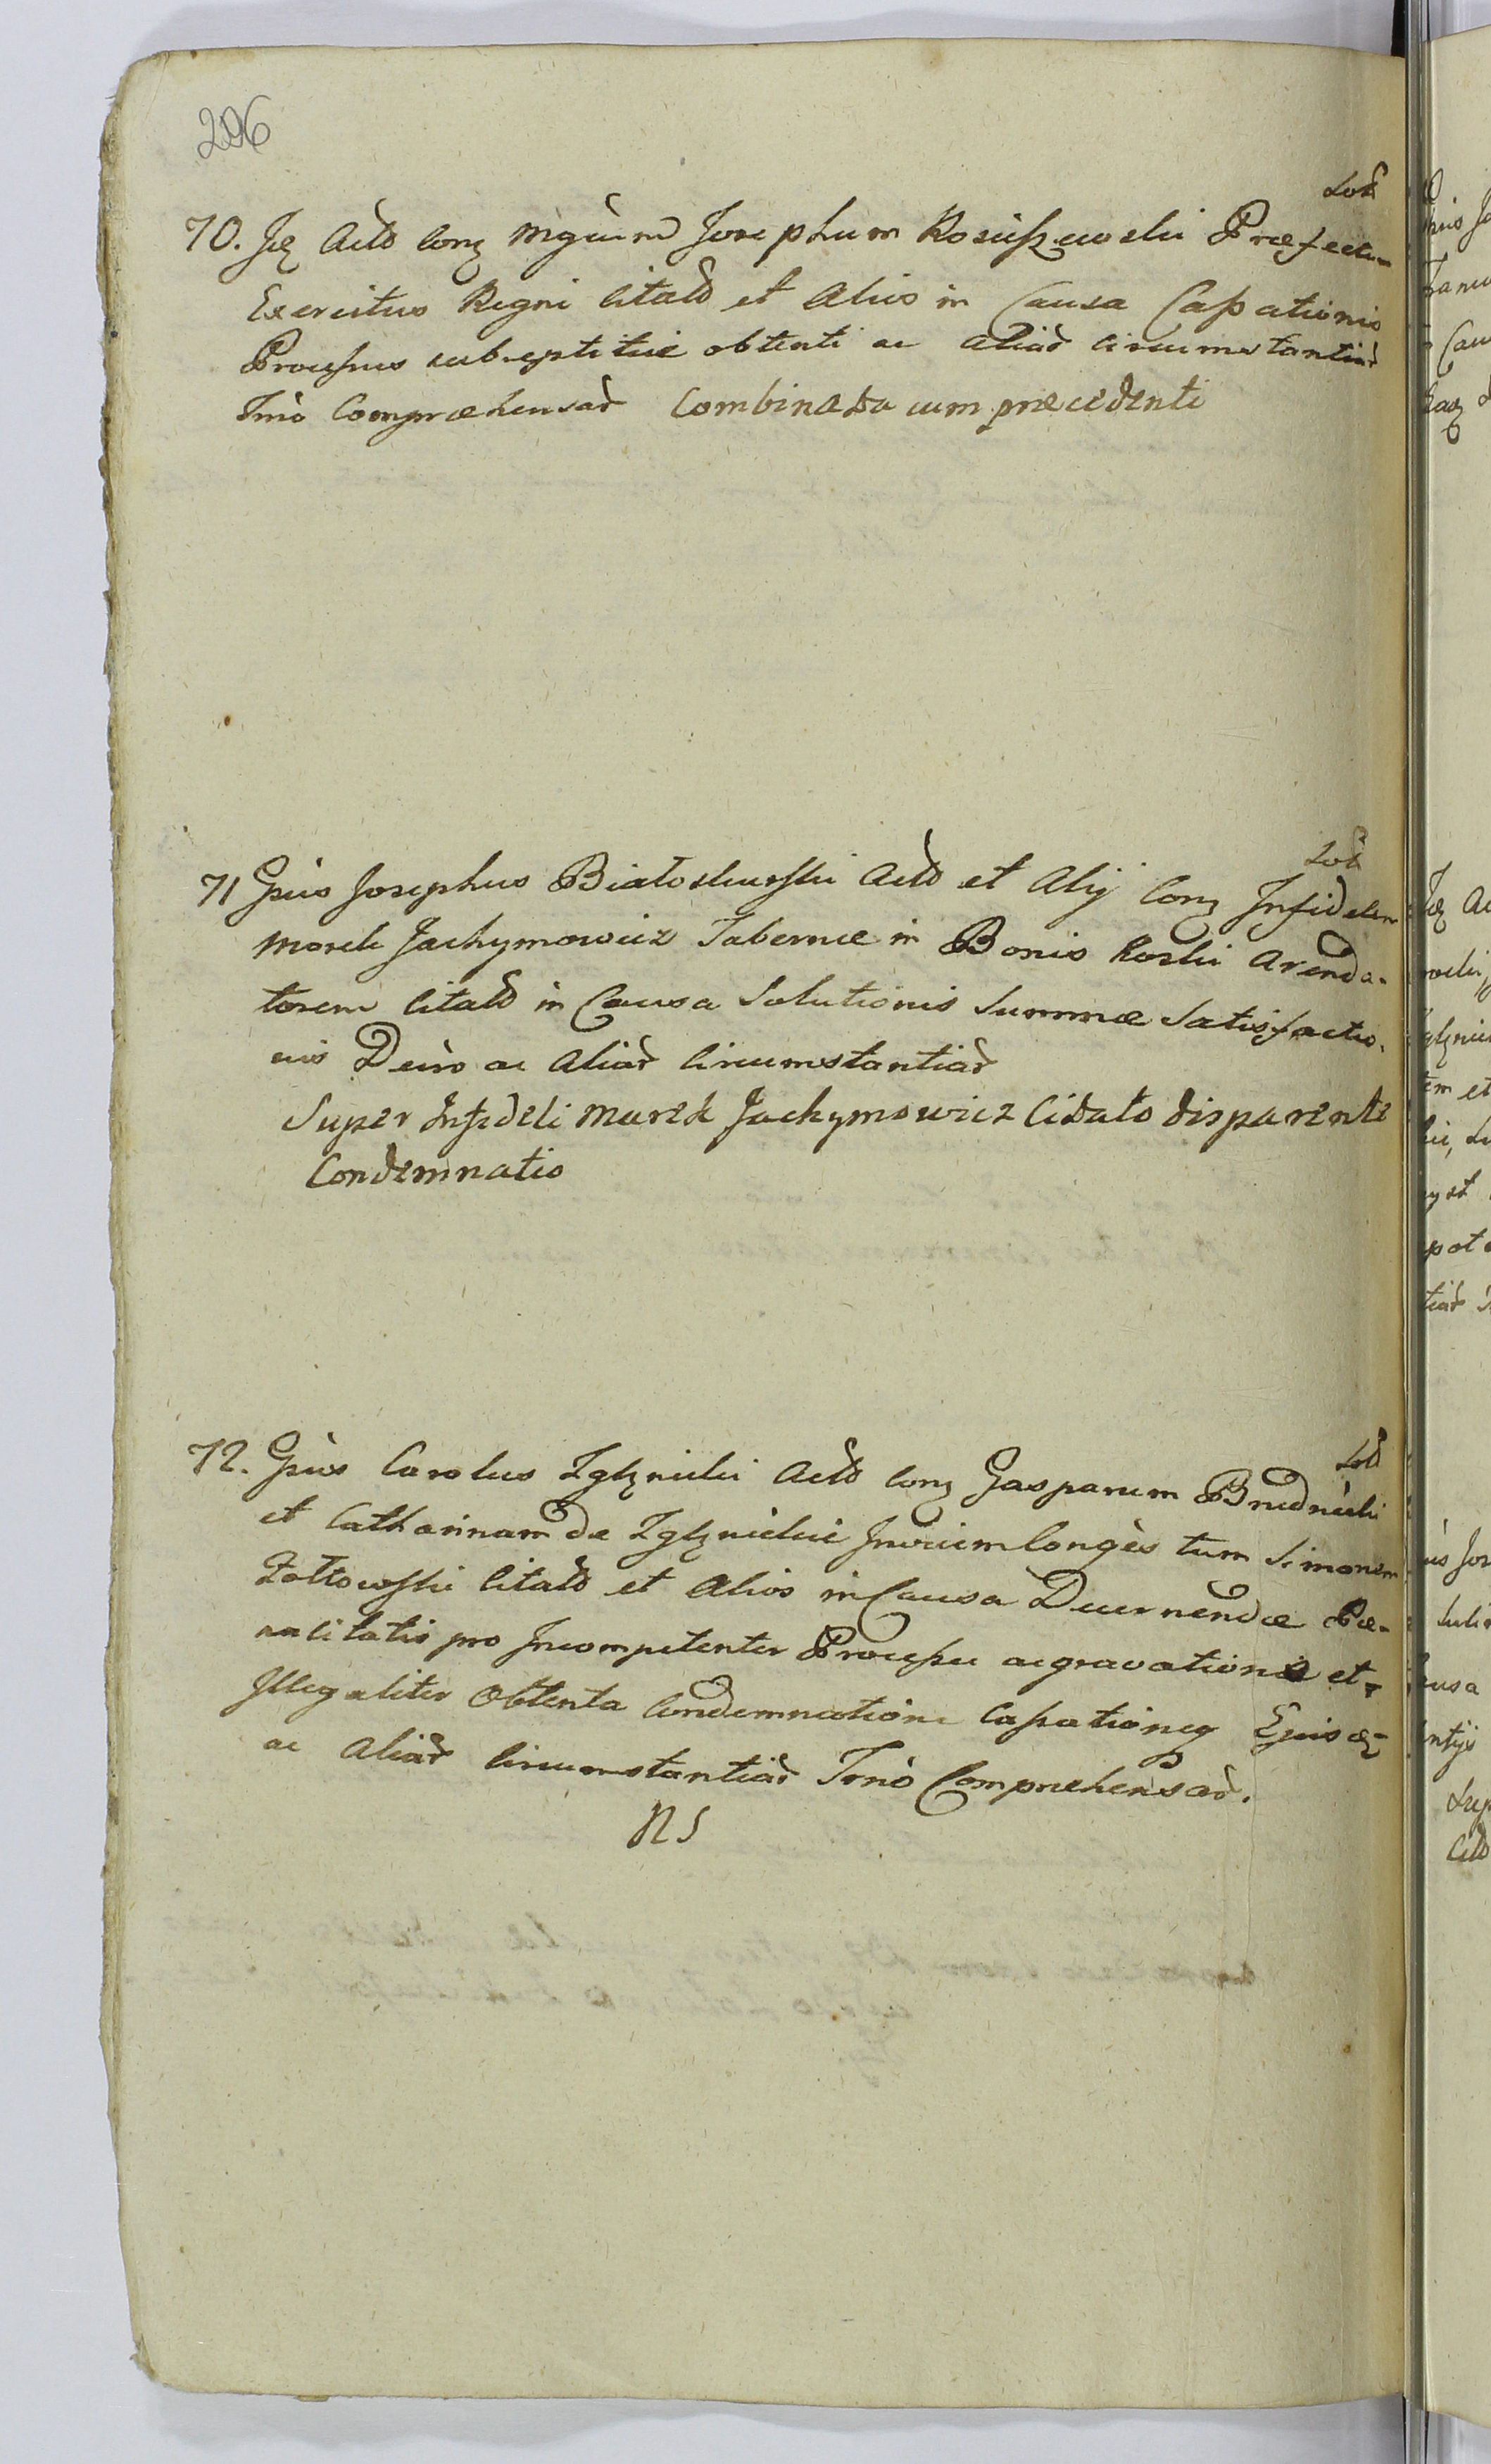 206
Lotd
70. Jdz Actd conz Mgcum Josephum Rosciszewski Præfectum
Exercitus Regni Citatd et Alios in Causa Cassationis
Processus subreptitie obtenti ac aliad circumstantiad
Trnò Compræhensad Combinata cum præcedenti
71 Gsùs Josephus Białoskurski Actd et Alij Conz Infidelem
Morek Jachymowicz Tabernæ in Bonis Roski Arenda-
torem Citatd in Causa Solutionis Summæ Satisfactio-
nis Decìro ac Aliad Circumstantiad
Super Infideli Marek Jachymowicz Citato disparente
Condemnatio
72. Gsùs Carolus Zglznicki Actd Conz Gasparum Brudnicki
et Catharinam de Zglznickie Invicem Conges tum Simonem
Zołtowski Citatd et Alios in Causa Decernendæ Pæ-
nalitatis pro Incompetenter Processu aggravatione et
Illegaliter Obtenta Condemnatione Cassationeq Ejus
ac Aliad Circumstantiad Trnò Compræhensad.
NS